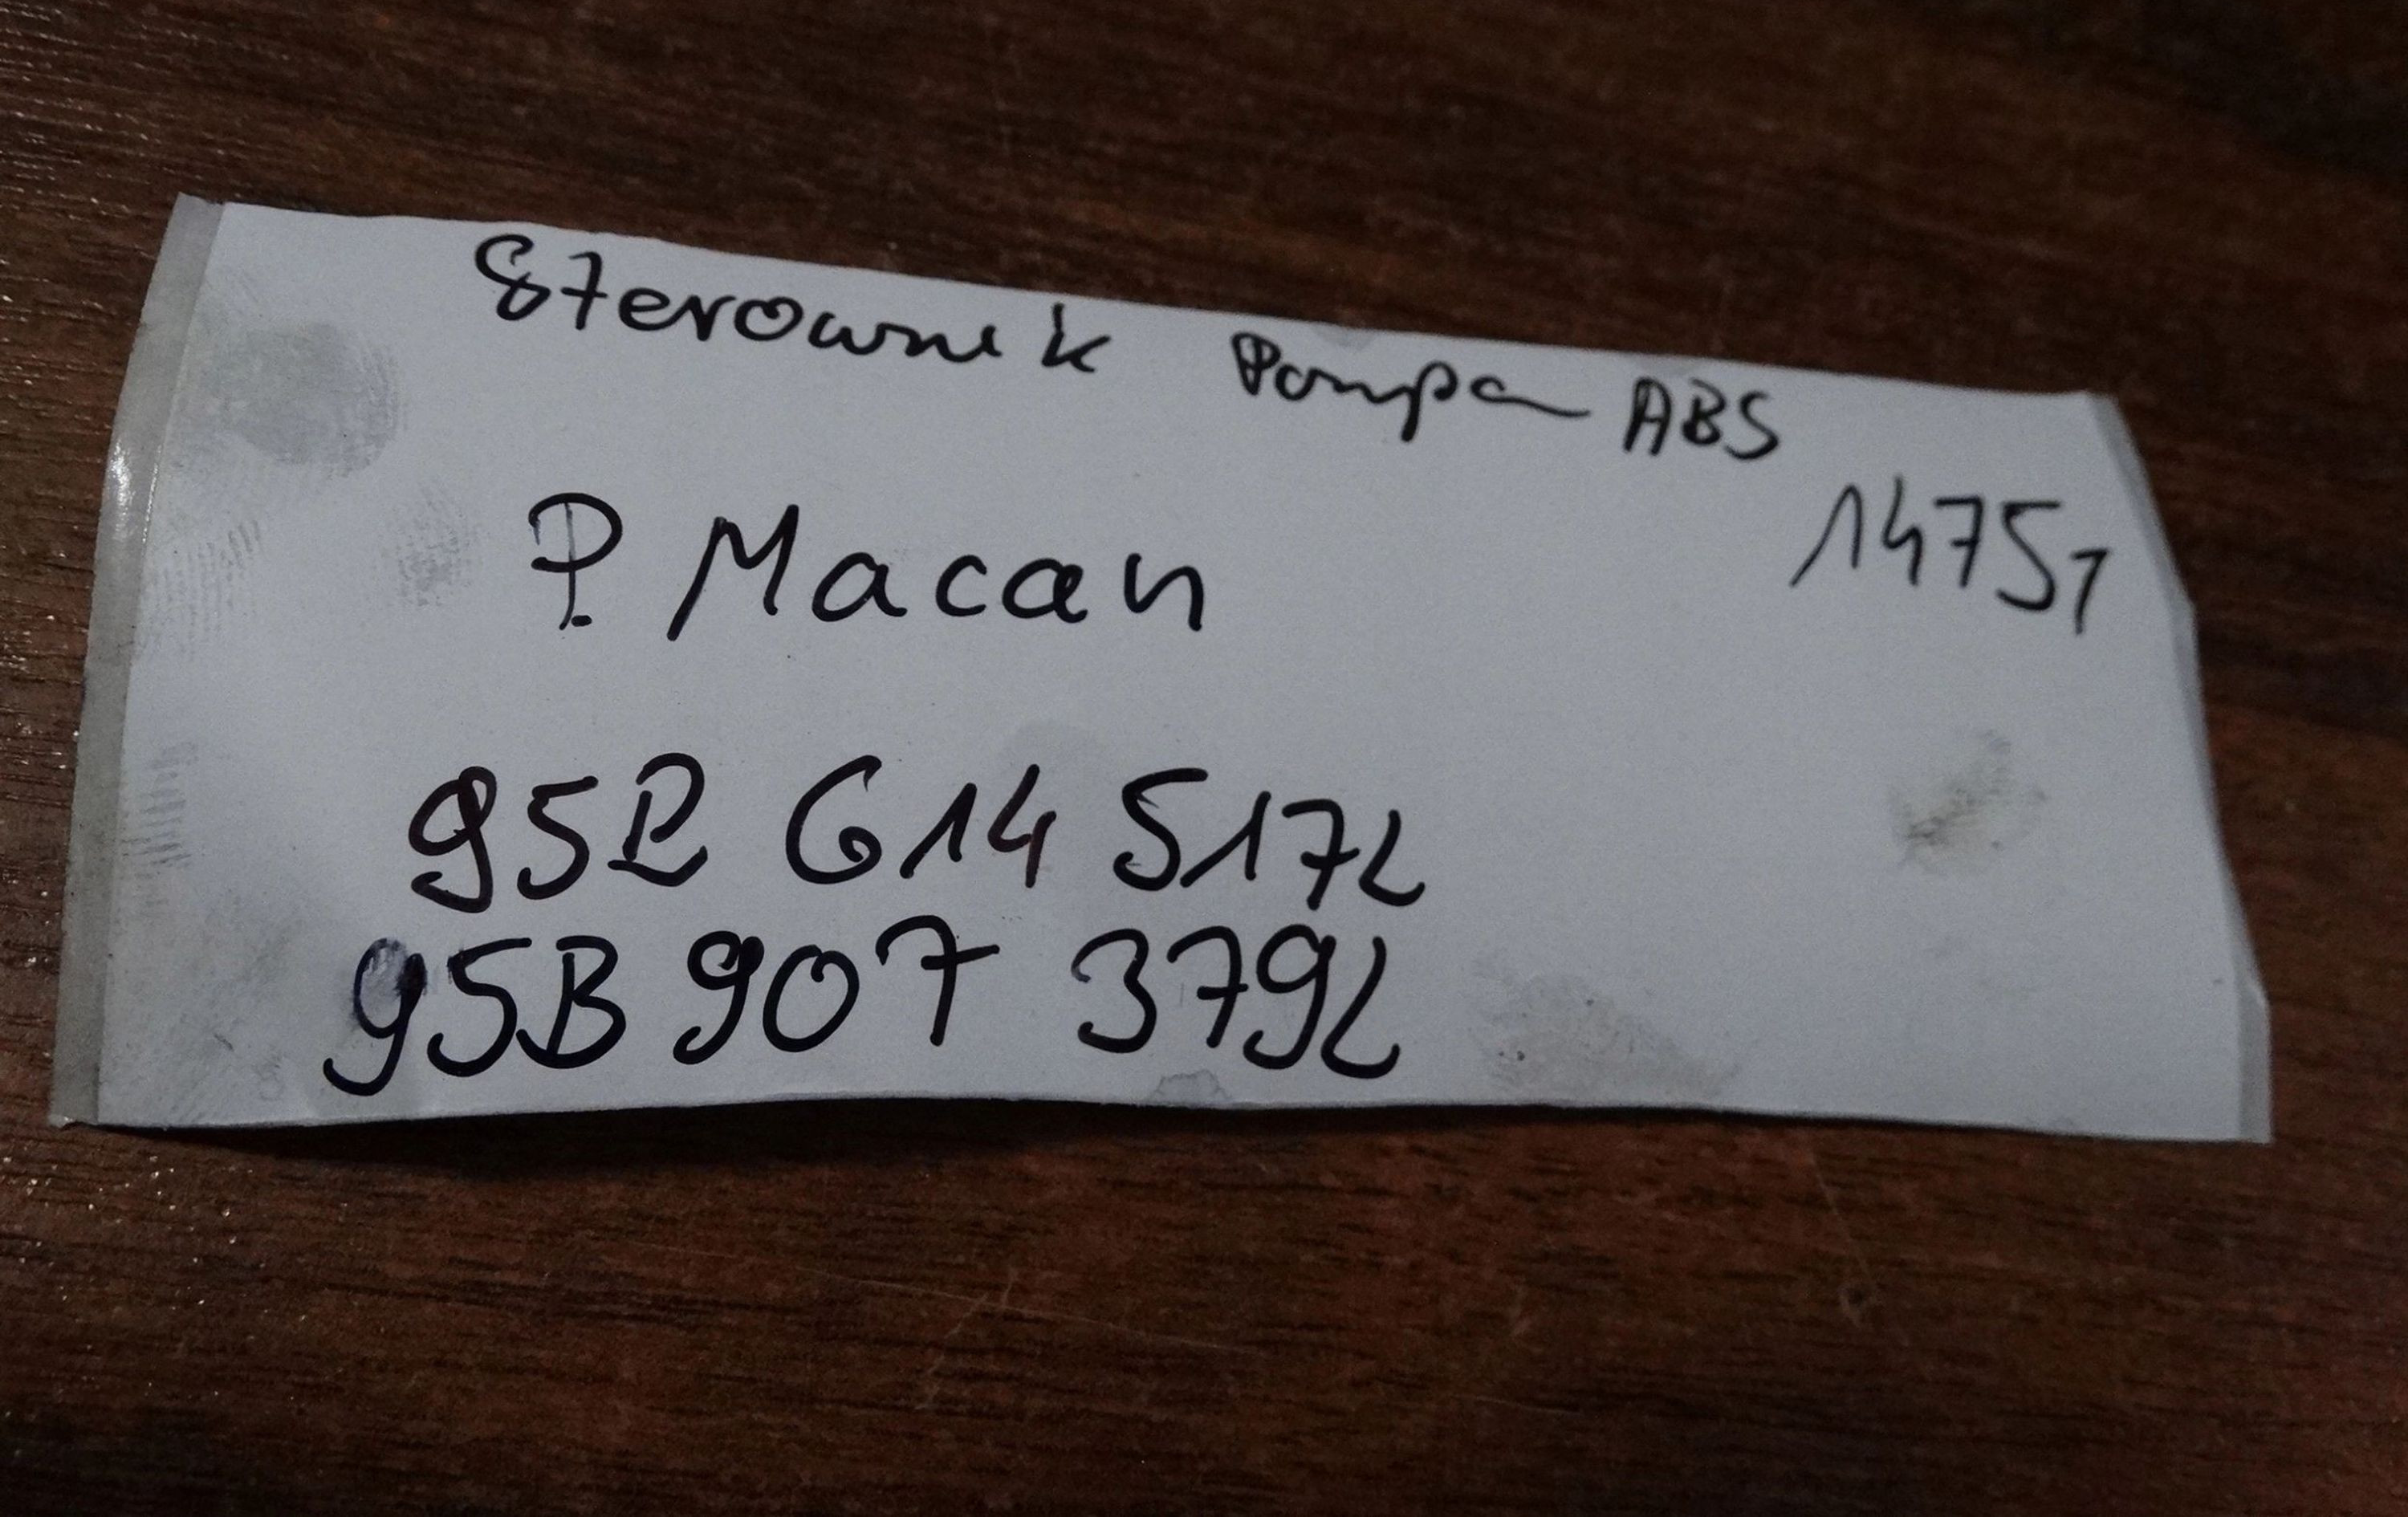 Sterownik Pompa ABS
14751
P. Macan
95B 614 517L
95B 907 379L